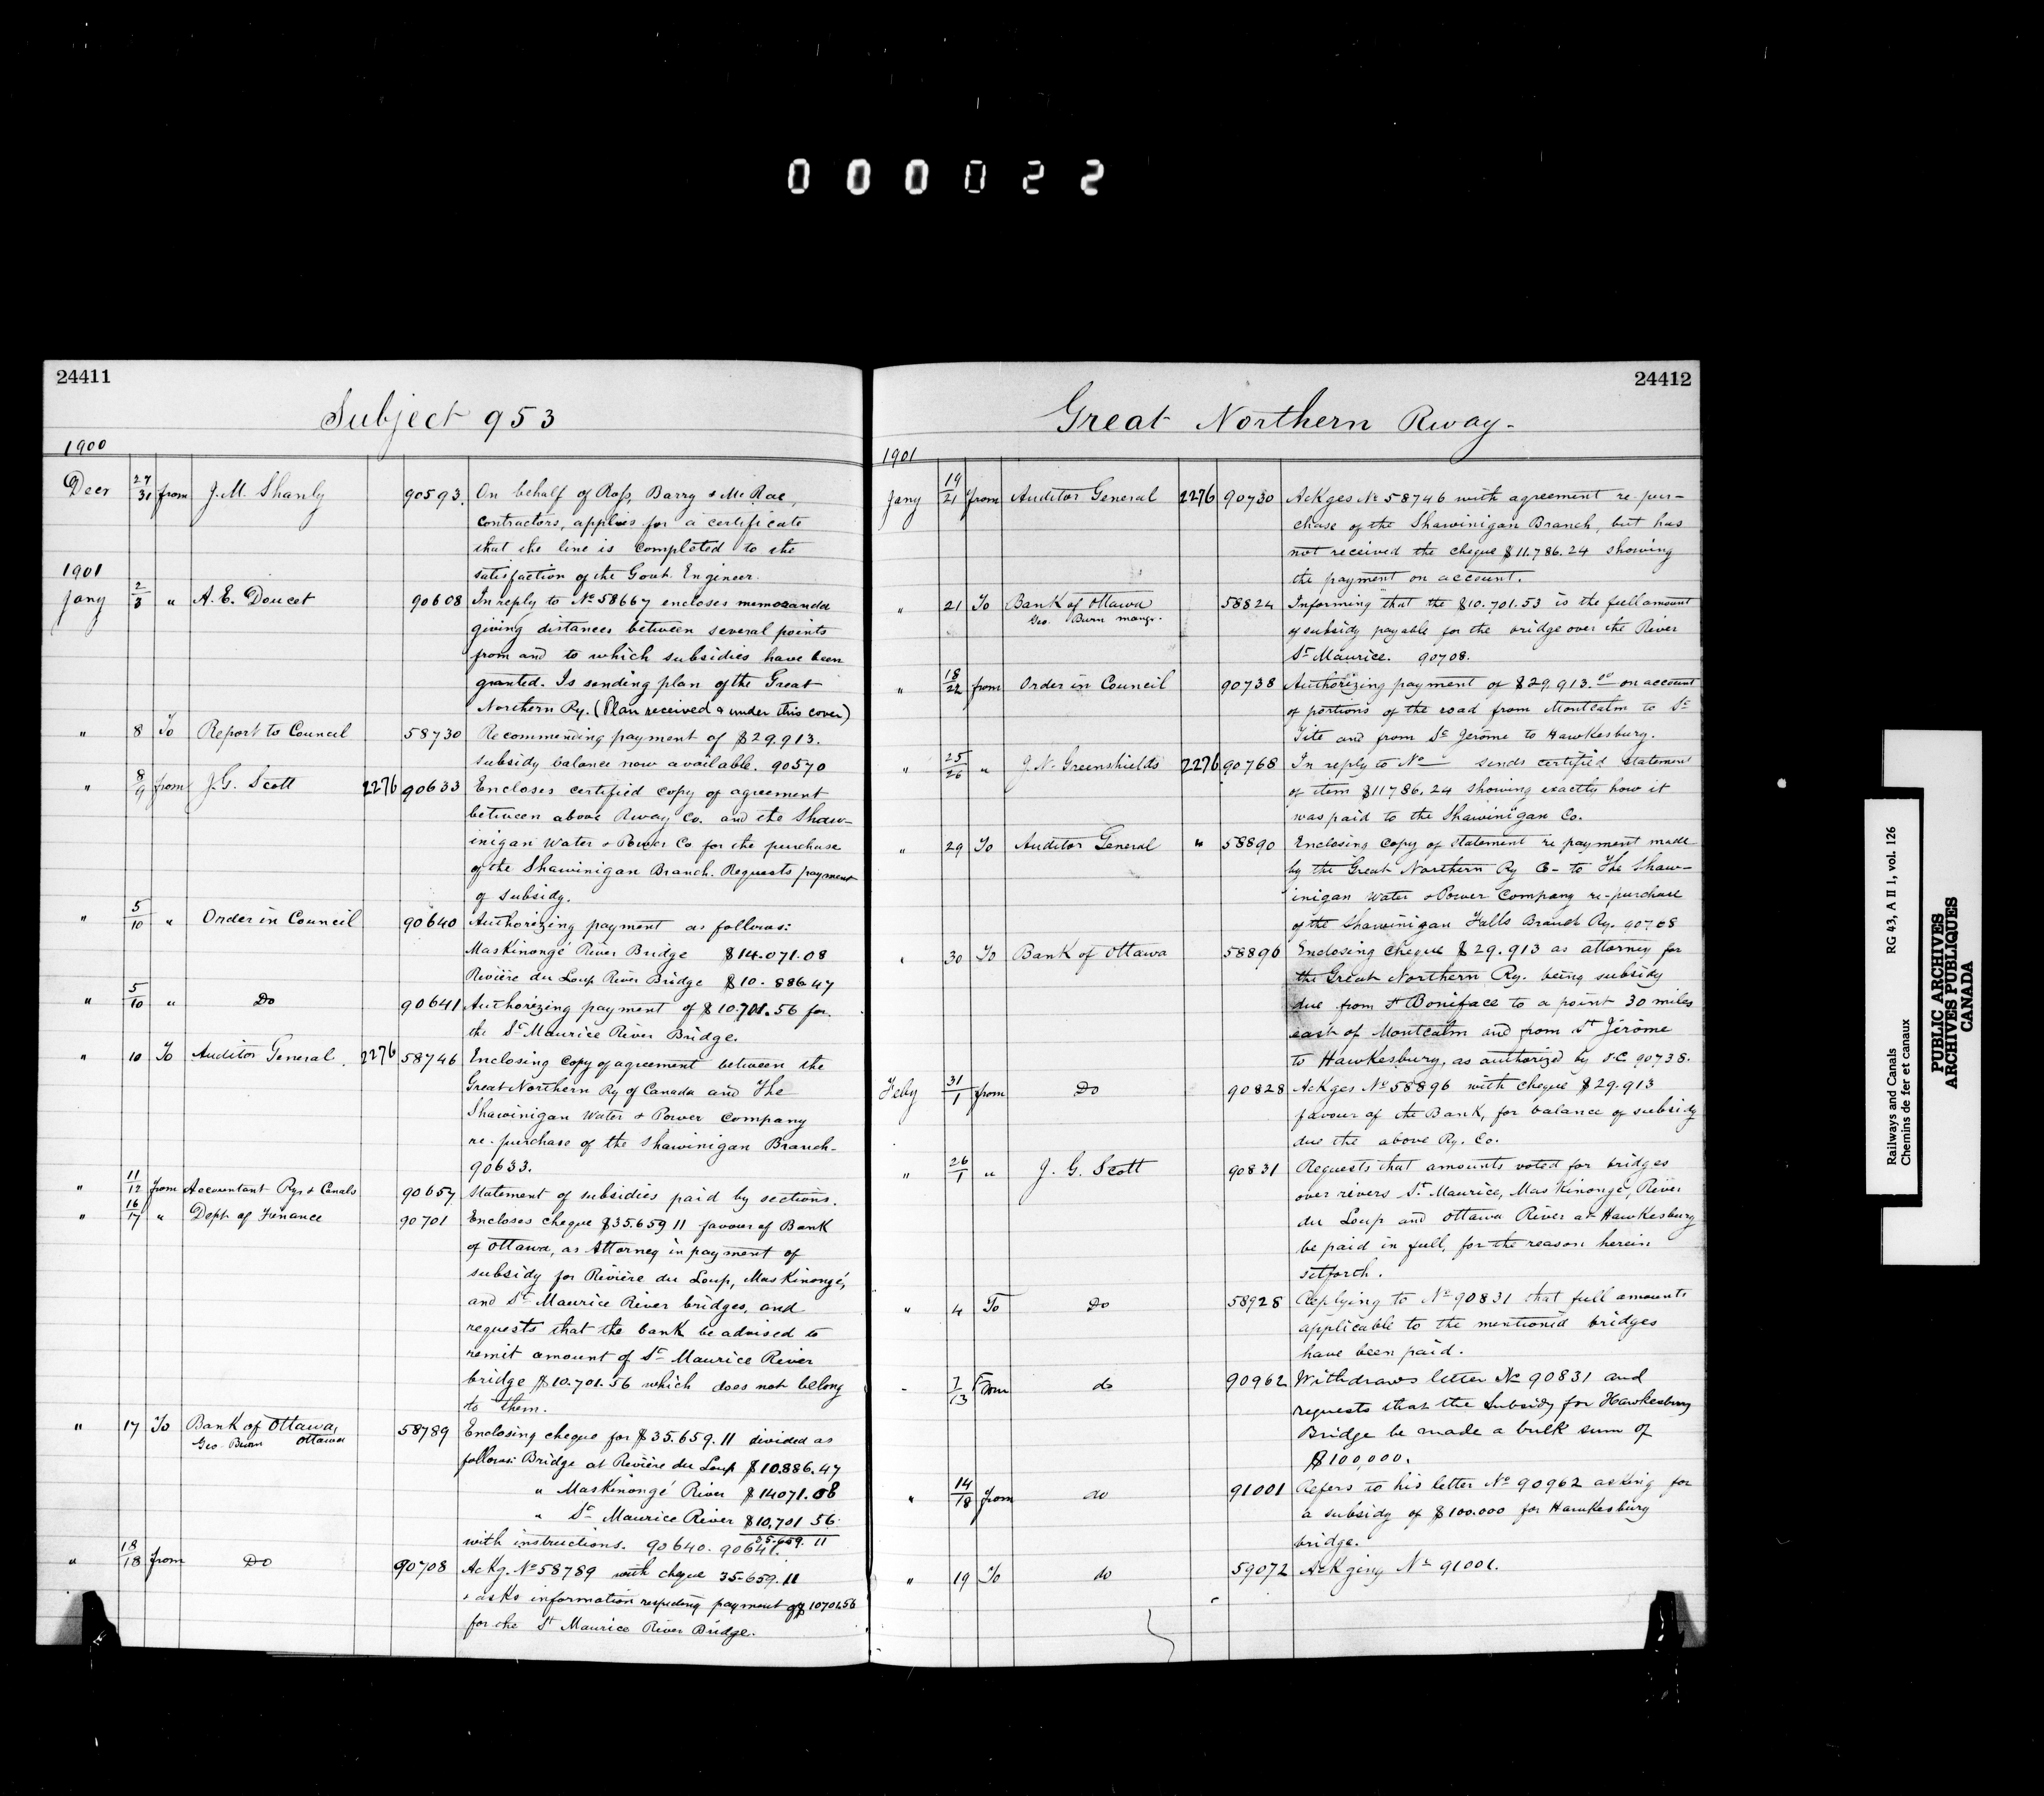 000022
24411
Subject 953
1900
Decr 27/31 from J. M. Shanly 90593. On behalf of Ross, Barry & Mc Rae,
contractors, applies for a certificate
that the line is completed to the
satisfaction of the Govt. Engineer.
1901
Jany 2/3 " A. E. Doucet 90608 In reply to No 58667 encloses memoranda
giving distances between several points
from and to which subsidies have been
granted. Is sending plan of the Great
Northern Ry. (Plan received & under this cover)
" 8 To Report to Council 58730 Recommending payment of $29.913.
subsidy balance now available. 90570
" 8/9 from J. G. Scott 2276 90633 Encloses certified copy of agreement
between above Rway Co. and the Shaw-
inigan Water & Power Co for the purchase
of the Shawinigan Branch. Requests payment
of subsidy.
" 5/10 " Order in Council 90640 Authorizing payment as follows:
Maskinongé River Bridge $14.071.08
Rivière du Loup River Bridge $10.886.47
" 5/10 " Do 90641 Authorizing payment of $10.701.56 for
the St Maurice River Bridge.
" 10 To Auditor General. 2276 58746 Enclosing copy of agreement between the
Great Northern Ry of Canada and The
Shawinigan Water & Power Company
re-purchase of the Shawinigan Branch-
90633.
" 11/12 from Accountant Rys & Canals 90657 Statement of subsidies paid by sections.
" 16/17 " Dept. of Finance 90701 Encloses cheque $35.659 11 favour of Bank
of Ottawa, as Attorney in payment of
subsidy for Rivière du Loup, Maskinongé,
and St Maurice River bridges, and
requests that the bank be advised to
remit amount of St Maurice River
bridge $10.701.56 which does not belong
to them.
" 17 To Bank of Ottawa, 58789 Enclosing cheque for $35.659.11 divided as
Geo. Burn Ottawa
follows: Bridge at Rivière du Loup $10.886.47
" Maskinongé River $14071.08
" St Maurice River $10,701 56
35.659. 11
with instructions. 90640. 90641.
" 18/18 from Do 90708 Ackg. No 58789 with cheque 35-659.11
& asks information respecting payment of $10701.56
for the St Maurice River Bridge.
24412
Great Northern Rway-
1901
Jany 19/21 from Auditor General 2276 90730 Ackges No 58746 with agreement re-pur-
chase of the Shawinigan Branch, but has
not received the cheque $11.786.24 showing
the payment on account.
" 21 To Bank of Ottawa 58824 Informing that the $10.701.53 is the full amount
Geo. Burn mangr.
of subsidy payable for the bridge over the River
St Maurice. 90708.
" 18/22 from Order in Council 90738 Authorizing payment of $29.913.00 on account
of portions of the road from Montcalm to St
Tite and from St Jerôme to Hawkesbury.
" 25/26 " J. N. Greenshields 2276 90768 In reply to No — sends certified statement
of item $11786.24 showing exactly how it
was paid to the Shawinigan Co.
" 29 To Auditor General " 58890 Enclosing copy of statement re payment made
by the Great Northern Ry Co- to The Shaw-
inigan Water & Power Company re-purchase
of the Shawinigan Falls Branch Ry. 90768
" 30 To Bank of Ottawa 58896 Enclosing cheque $29.913 as attorney for
the Great Northern Ry. being subsidy
due from St Boniface to a point 30 miles
east of Montcalm and from St Jérôme
to Hawkesbury, as authorized by O.C. 90738.
Feby 31/1 from Do 90828 Ackges No 58896 with cheque $29.913
favour of the Bank, for balance of subsidy
due the above Ry. Co.
" 26/1 " J. G. Scott 90831 Requests that amounts voted for bridges
over rivers St Maurice, Maskinongé, River
du Loup and Ottawa River at Hawkesbury
be paid in full, for the reason herein
setforth.
" 4 To Do 58928 Replying to No 90831 that full amounts
applicable to the mentioned bridges
have been paid.
- 7/13 From do 90962 Withdraws letter No 90831 and
requests that the Subsidy for Hawkesbury
Bridge be made a bulk sum of
$100,000.
" 14/18 from do 91001 Refers to his letter No 90962 asking for
a subsidy of $100.000 for Hawkesbury
bridge.
" 19 To do 59072 Ackging No 91001.
Railways and Canals RG 43, A II 1, vol. 126
Chemins de fer et canaux
PUBLIC ARCHIVES
ARCHIVES PUBLIQUES
CANADA